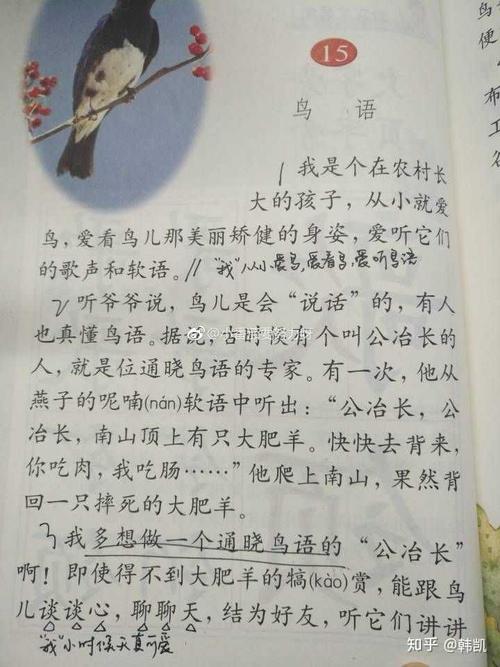 15
鸟语
1 我是个在农村长
大的孩子，从小就爱
鸟，爱看鸟儿那美丽矫健的身姿，爱听它们
的歌声和软语。// “我”从小爱鸟，爱看鸟，爱听鸟语
2 听爷爷说，鸟儿是会“说话”的，有人
也真懂鸟语。据说，古时候有个叫公冶长的
人，就是位通晓鸟语的专家。有一次，他从
燕子的呢喃(nán)软语中听出：“公冶长，公
冶长，南山顶上有只大肥羊。快快去背来，
你吃肉，我吃肠……”他爬上南山，果然背
回一只摔死的大肥羊。
3 我多想做一个通晓鸟语的“公冶长”
啊！即使得不到大肥羊的犒(kào)赏，能跟鸟
儿谈谈心，聊聊天，结为好友，听它们讲讲
“我”小时候天真可爱
知乎 @韩凯
鸟
便
布